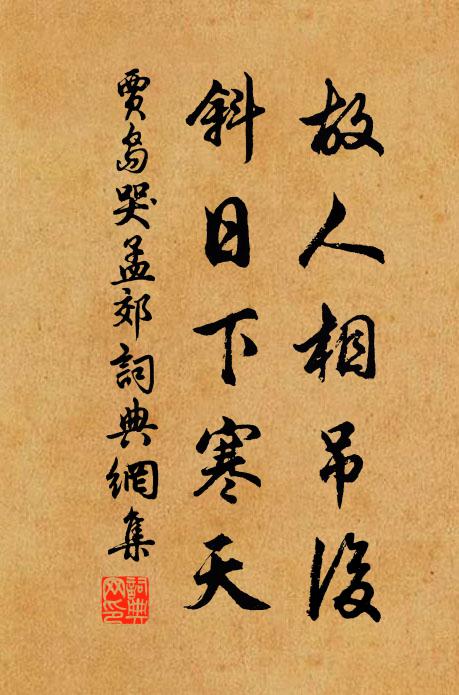 故人相吊後
斜日下寒天
賈島哭孟郊詞典網集
詞典網印